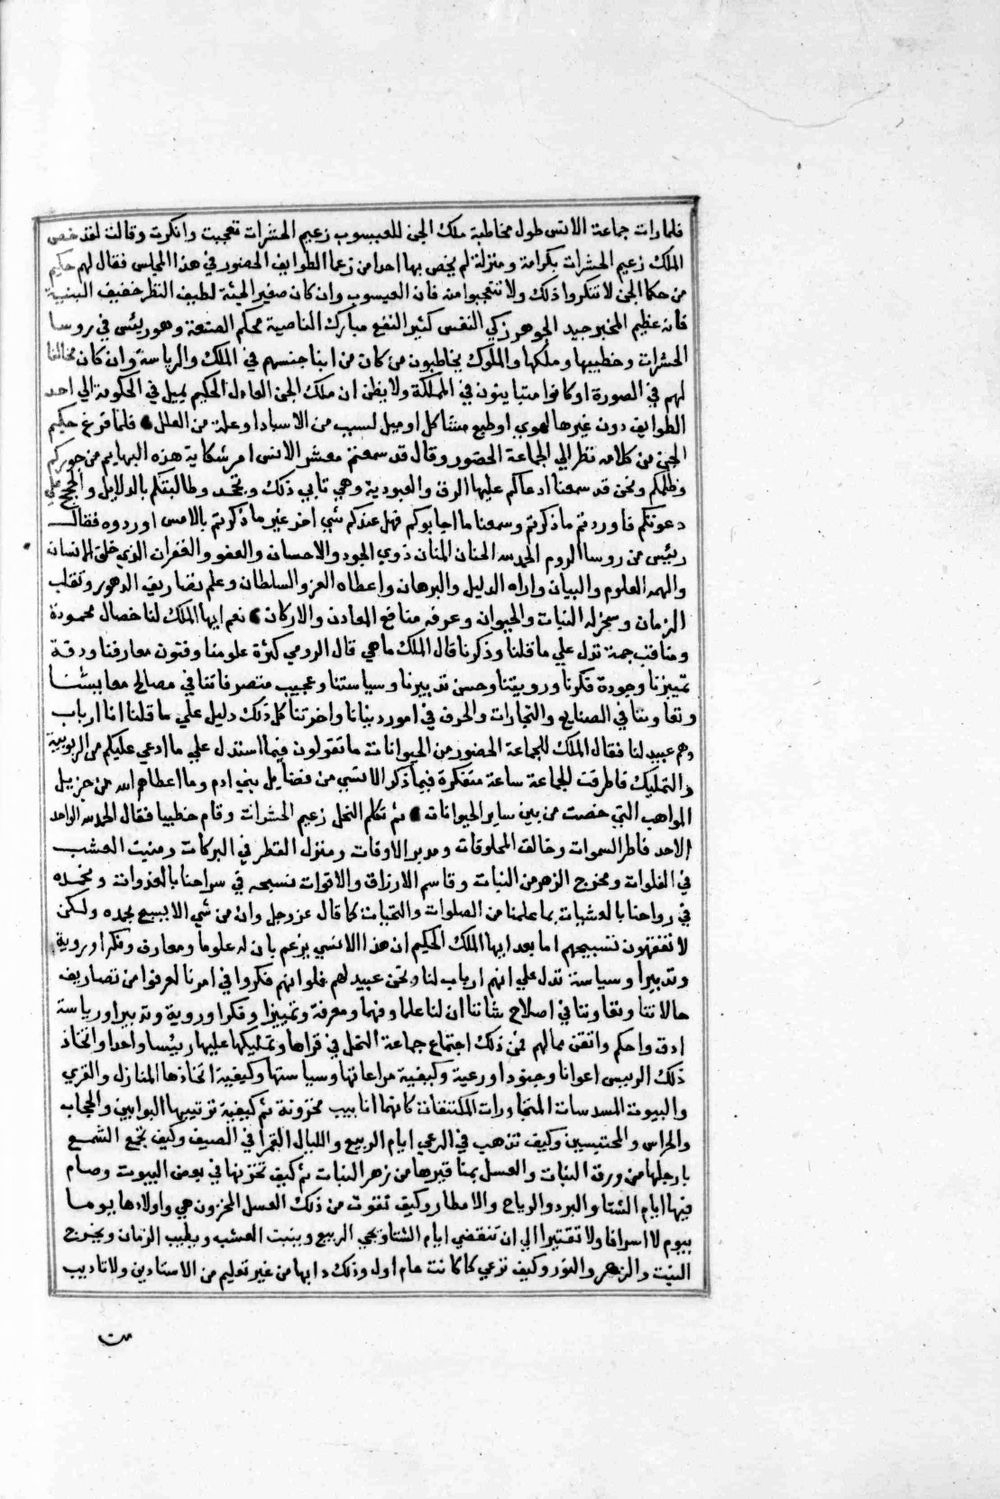 فلما رات جماعة الانس طول مخاطبة ملك الجن لليعسوب زعيم الحشرات تعجبت وانكرت وقالت لقد خص
الملك زعيم الحشرات بكرامة ومنزلة لم يخص بها احدا من زعما الطوايف الحضور في هذا المجلس فقال لهم حكيم
من حكما الجن لا تنكروا ذلك ولا تتعجبوا منه فان اليعسوب وان كان صغير الجثة لطيف النظر خفيف البنية
فانه عظيم المخبر جيد الجوهر زكي النفس كثير النفع مبارك الناصية محكم الصنعة وهو رئيس في روسا
الحشرات وخطيبها وملكها والملوك يخاطبون من كان من ابنا جنسهم في الملك والرياسة وان كان مخالفا
لهم في الصورة او كانوا متباينون في المملكة ولا يظن ان ملك الجن العادل الحكيم يميل في الحكومة الي احد
الطوايف دون غيرها لهوي او طبع مشاكل او ميل لسبب من الاسباب او علة من العلل فلما فرغ حكيم
الجن من كلامه نظر الي الجماعة الحضور وقال قد سمعتم معشر الانس امر شكاية هذه البهايم من جوركم
وظلمكم ونحن قد سمعنا ادعاكم عليها الرق والعبودية وهي تابي ذلك وتجحد وطالبتكم بالدلايل والحجج علي
دعوتكم فاوردتم ما ذكرتم وسمعنا ما اجابوكم فهل عندكم شي اخر غير ما ذكرتم بالامس اوردوه فقال
رئيس من روسا الروم الحمد لله الحنان المنان ذوي الجود والاحسان والعفو والغفران الذي خلق الانسان
والهمه العلوم والبيان واراه الدليل والبرهان واعطاه العز والسلطان وعلم تصاريف الدهور وتقلب
الزمان وسخر له النبات والحيوان وعرفه منافع المعادن والاركان نعم ايها الملك لنا خصال محمودة
ومناقب جمة تدل علي ما قلنا وذكرنا قال الملك ما هي قال الرومي كثرة علومنا وفنون معارفنا ودقة
تمييزنا وجودة فكرنا ورويتنا وحسن تدبيرنا وسياستنا وعجيب متصرفاتنا في مصالح معايشنا
وتعاوننا في الصنايع والتجارات والحرف في امور دنيانا واخرتنا كل ذلك دليل علي ما قلنا انا ارباب
وهم عبيد لنا فقال الملك للجماعة الحضور من الحيوانات ما تقولون فيما استدل علي ما ادعي عليكم من الربوبية
والتمليك فاطرقت الجماعة ساعة متفكرة فيما ذكر الانسي من فضايل بني ادم وما اعطاهم الله من جزيل
المواهب التي خصت من بين ساير الحيوانات ثم تكلم النحل زعيم الحشرات وقام خطيبا فقال الحمد لله الواحد
الاحد فاطر السموات وخالق المخلوقات ومدبر الاوقات ومنزل القطر في البركات ومنبت العشب
في الفلوات ومخرج الزهر من النبات وقاسم الارزاق والاقوات نسبحه في سراحنا بالغدوات ونحمده
في رواحنا بالعشيات بما علمنا من الصلوات والتحيات كما قال عز وجل وان من شي الا يسبح بحمده ولكن
لا تفقهون تسبيحهم اما بعد ايها الملك الحكيم ان هذا الانسي يزعم بان له علوما ومعارف وفكرا وروية
وتدبيرا وسياسة تدل علي انهم ارباب لنا ونحن عبيد لهم فلو انهم فكروا في امرنا لعرفوا من تصاريف
حالاتنا وتعاوننا في اصلاح شاننا ان لنا علما وفهما ومعرفة وتمييزا وفكرا وروية وتدبيرا ورياسة
ادق واحكم واتقن مما لهم فمن ذلك اجتماع جماعة النحل في قراها وتمليكها عليها رييسا واحدا واتخاذ
ذلك الرييس اعوانا وجنودا ورعية وكيفية مراعاتها وسياستها وكيفية اتخاذها المنازل والقري
والبيوت المسدسات المتجاورات المكتنفات كانها انابيب مخزونة ثم كيفية ترتيبها البوابين والحجاب
والحراس والمحتسبين وكيف تذهب في الرعي ايام الربيع والليال القمرا في الصيف وكيف تجمع الشمع
بارجلها من ورق النبات والعسل بمناقيرها من زهر النبات ثم كيف تخزنها في بعض البيوت وصام
فيها ايام الشتا والبرد والرياح والامطار وكيف تقوت من ذلك العسل المخزون هي واولادها يوما
بيوم لا اسرافا ولا تقتيرا الي ان تنقضي ايام الشتا ويجي الربيع وينبت العشب ويطيب الزمان ويخرج
النبت والزهر والنور وكيف ترعي كما كانت عام اول وذلك دابها من غير تعليم من الاستاذين ولا تاديب
من